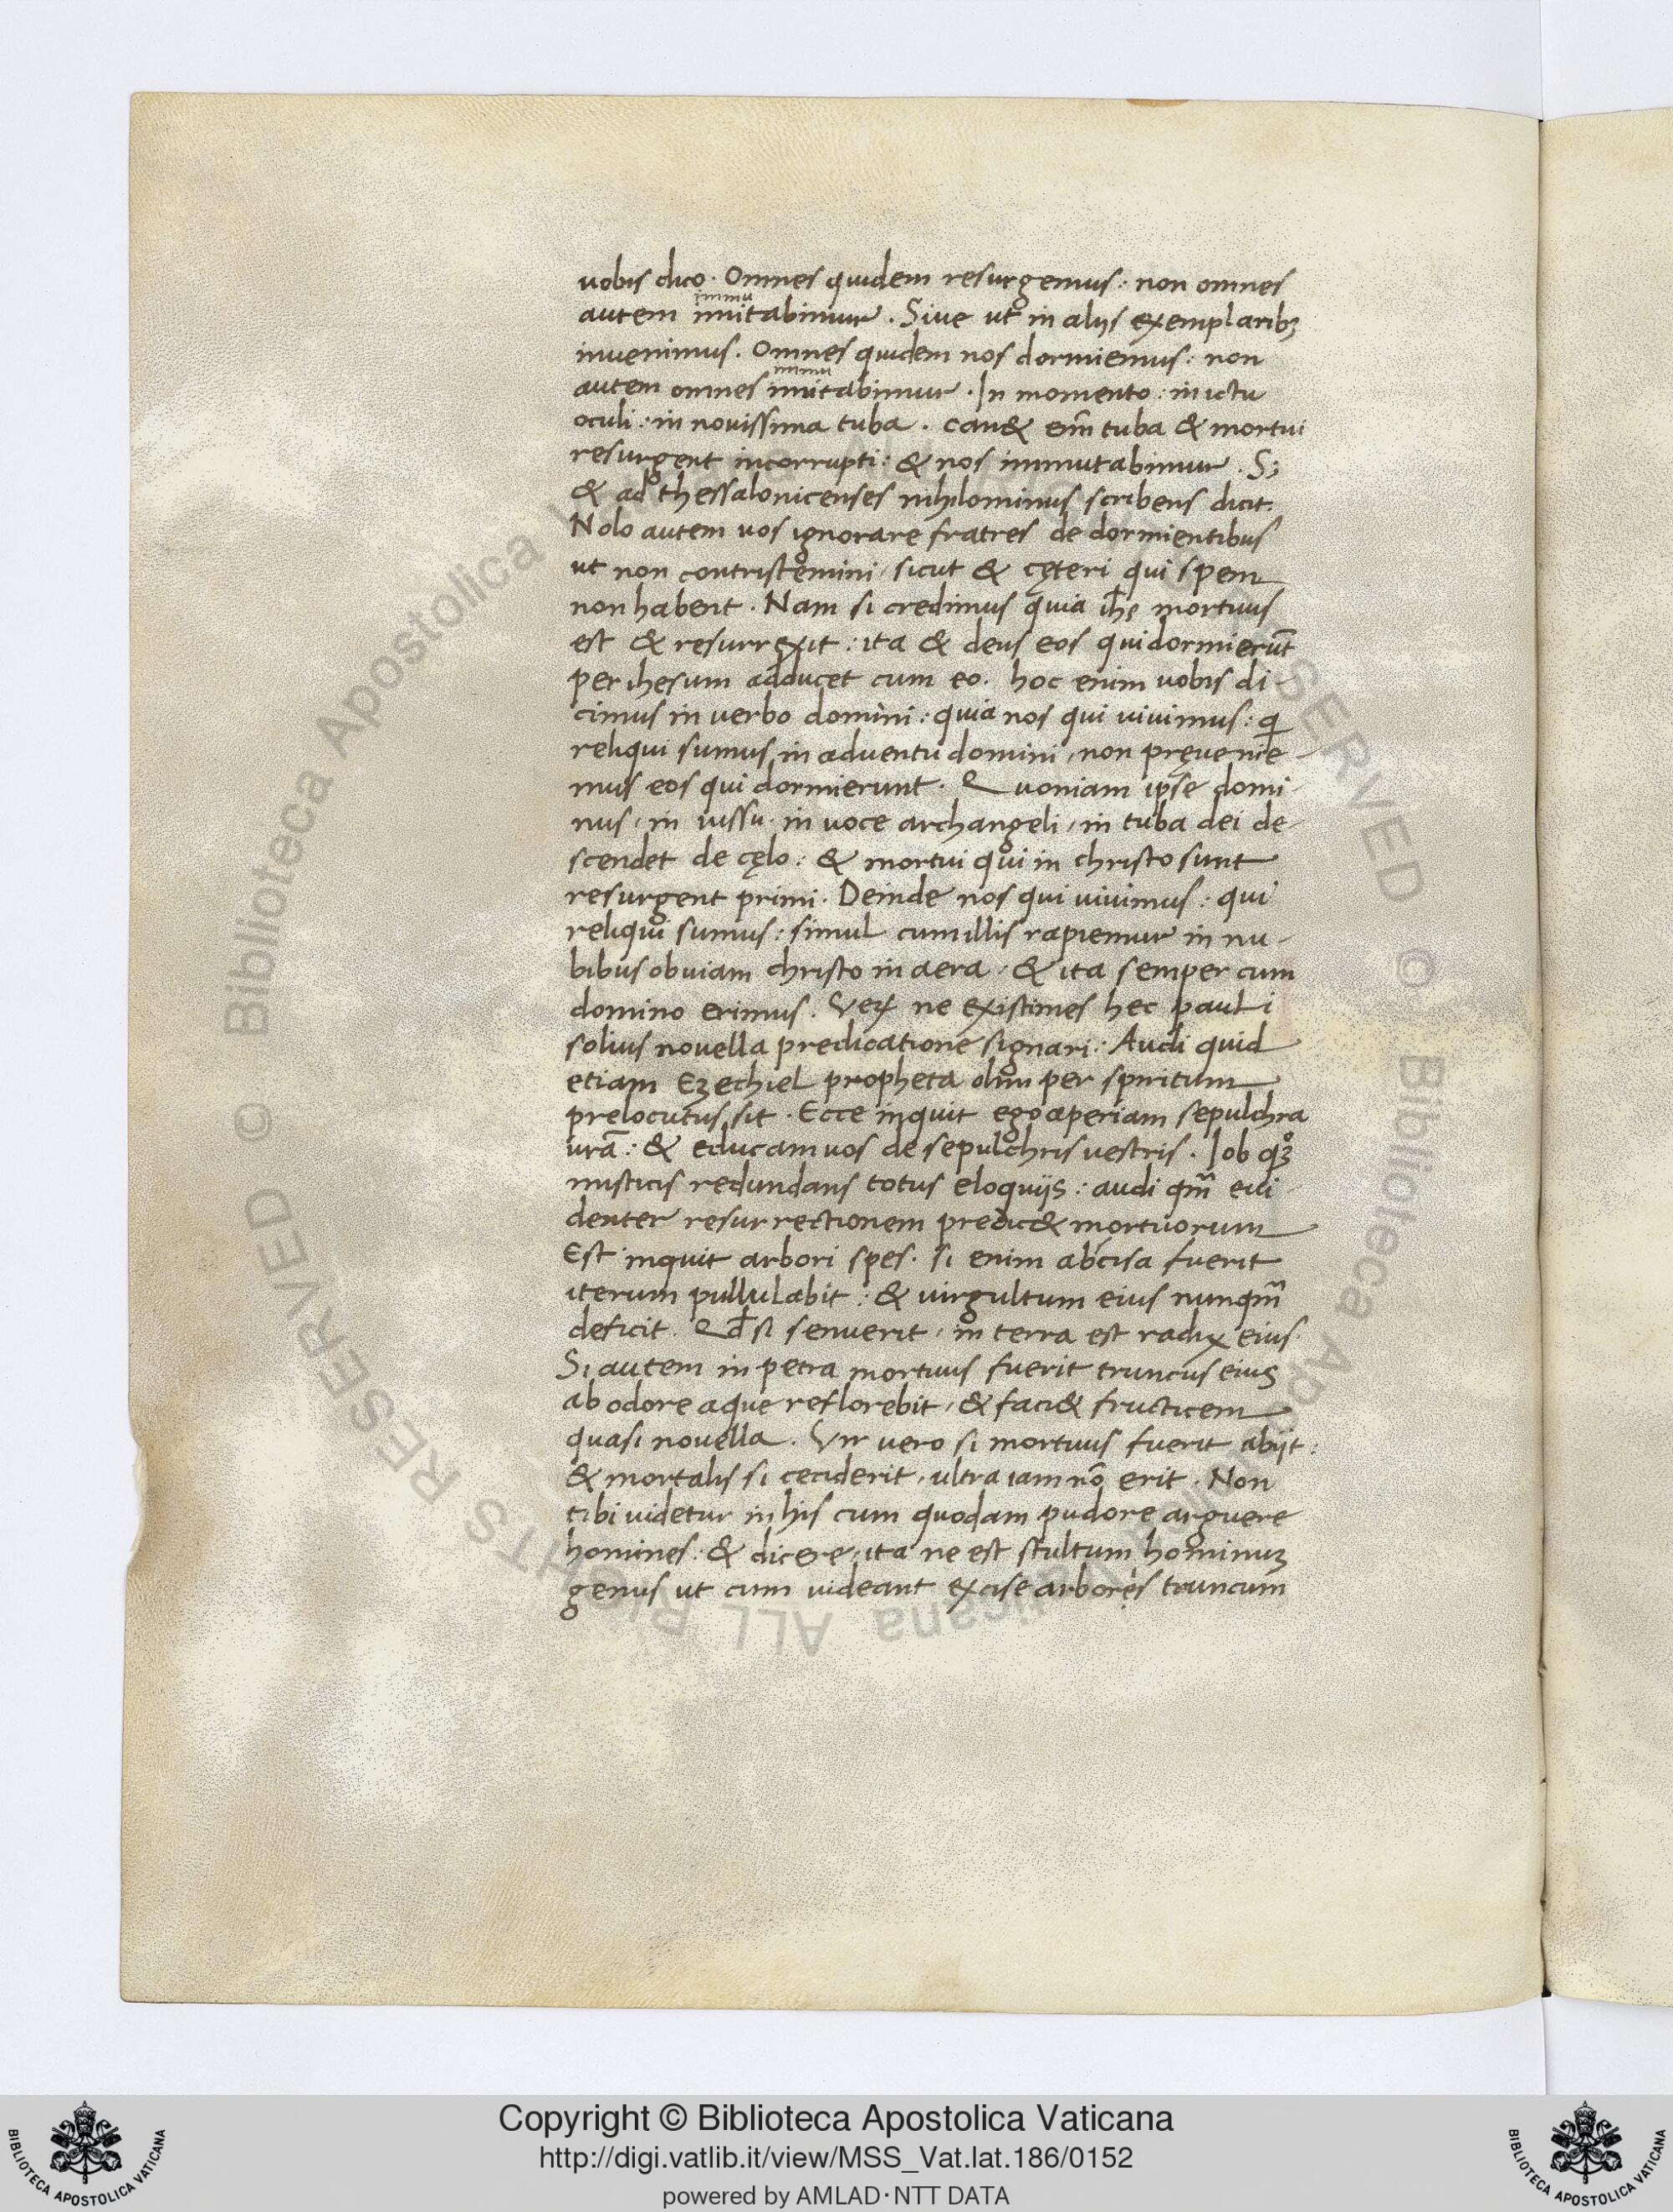 uobis dico. Omnes quidem resurgemus: non omnes
immu
autem imitabimur. Siue ut in alijs exemplaribꝫ
inuenimus. Omnes quidem nos dormiemus: non
immu
autem omnes imitabimur. In momento: in ictu
oculi: in nouissima tuba. Can& em̅ tuba & mortui
resurgent incorrupti: & nos immutabimur. S;
& ad thessalonicenses nihilominus scribens dicit.
Nolo autem uos ignorare fratres de dormientibus
ut non contristemini, sicut & cęteri qui spem
non habent. Nam si credimus quia ihs̅ mortuus
est & resurrexit: ita & deus eos qui dormieru̅t
per ihesum adducet cum eo. hoc enim uobis di-
cimus in verbo domini: quia nos qui uiuimus: q̅
reliqui sumus in aduentu domini, non pręuenie-
mus eos qui dormierunt. Quoniam ipse domi-
nus, in iussu. in uoce archangeli, in tuba dei de-
scendet de cęlo: & mortui qui in christo sunt
resurgent primi. Deinde nos qui uiuimus: qui
reliqui sumus: simul cum illis rapiemur in nu-
bibus obuiam christo in aera, & ita semper cum
domino erimus. Veꝝ ne existimes hec pauli
solius nouella predicatione signari: Audi quid
etiam Ezechiel propheta olim per spiritum
prelocutus sit. Ecce inquit ego aperiam sepulchra
ur̅a: & educam uos de sepulchris uestris. Iob qꝫ
misticis redundans totus eloquijs: audi qm̅ eui
denter resurrectionem predic& mortuorum
Est inquit arbori spes. si enim abscisa fuerit
iterum pullulabit: & uirgultum eius nunqm̅
deficit. Qd̅ si senuerit, in terra est radix eius.
Si autem in petra mortuus fuerit truncus eius
ab odore aque reflorebit, & faci& fructicem
quasi nouella. Vir uero si mortuus fuerit abijt:
& mortalis si ceciderit, ultra iam no̅ erit. Non
tibi uidetur in his cum quodam pudore arguere
homines: & dicere, ita ne est stultum hominuꝫ
genus ut cum uideant excise arbores truncum
Copyright © Biblioteca Apostolica Vaticana
http://digi.vatlib.it/view/MSS_Vat.lat.186/0152
powered by AMLAD·NTT DATA
BIBLIOTECA APOSTOLICA VATICANA
BIBLIOTECA APOSTOLICA VATICANA
© Biblioteca Apostolica Vaticana ALL RIGHTS RESERVED
© Biblioteca Apostolica Vaticana ALL RIGHTS RESERVED